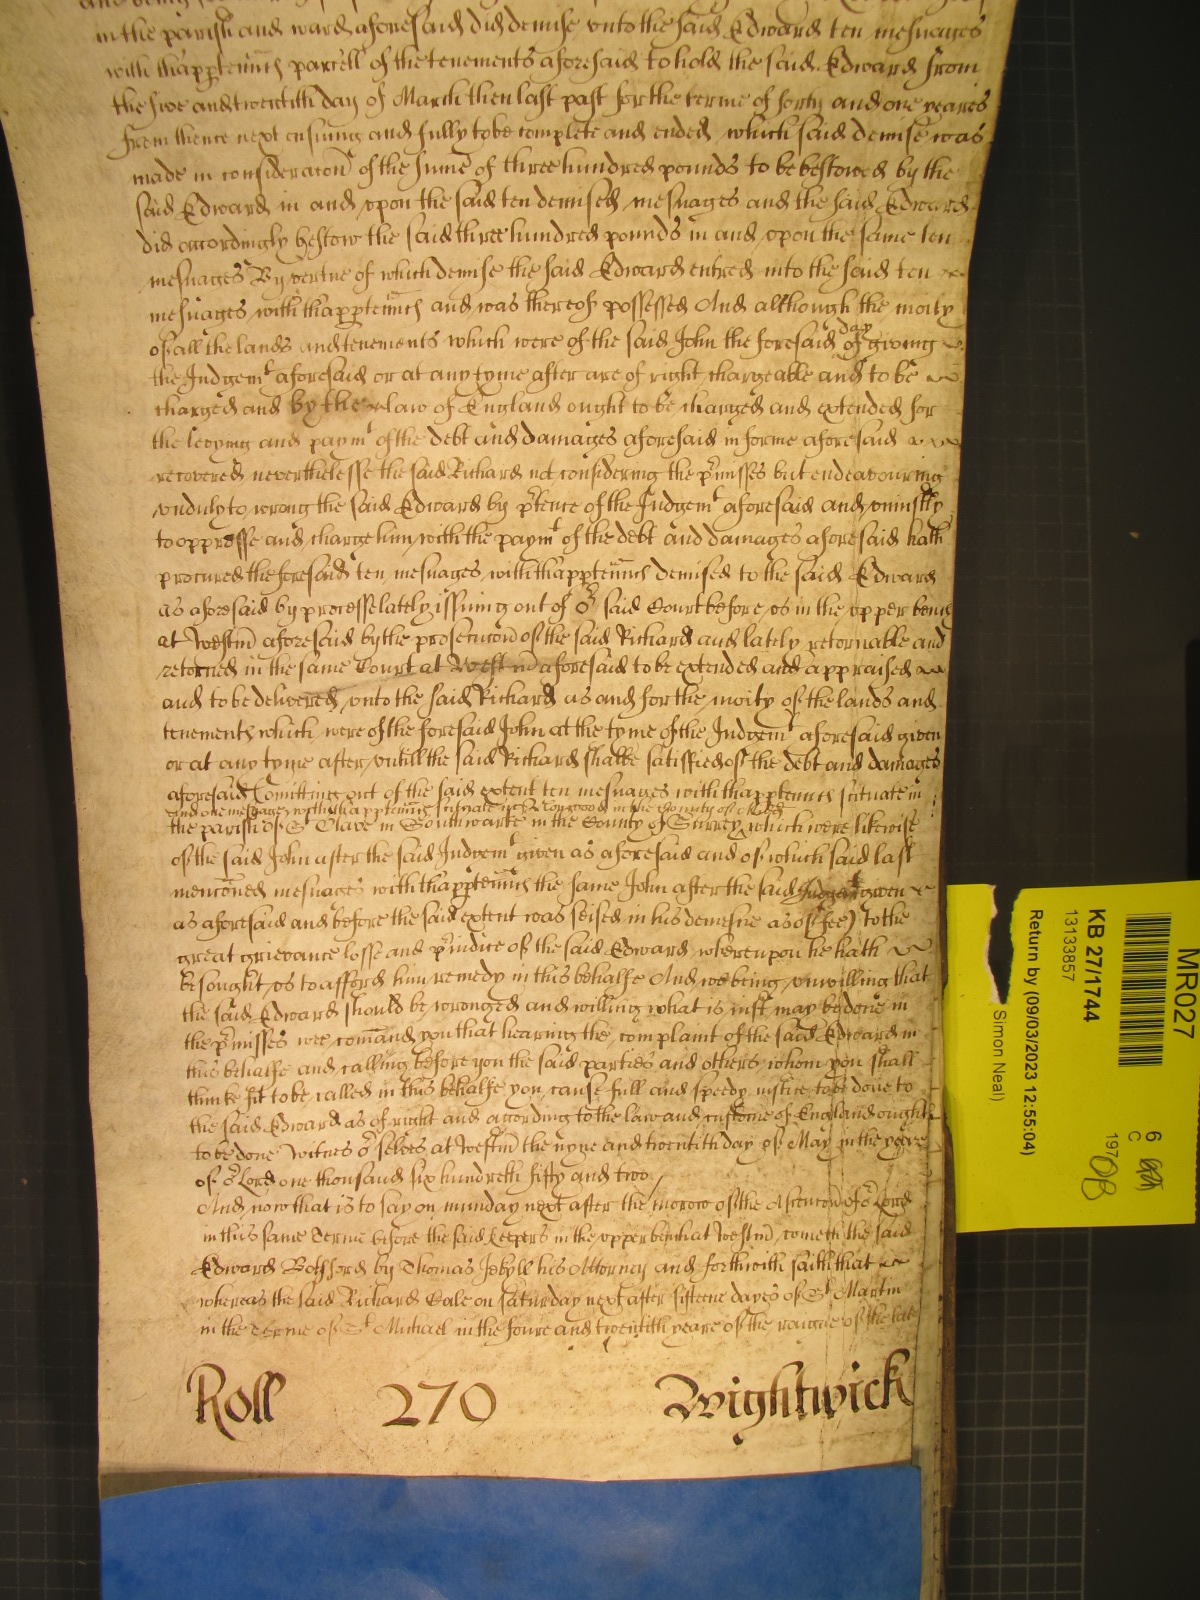 in the parish and ward aforesaid did demise unto the said Edward ten mesuages
with thapptennces parcell of the tenements aforesaid to hold the said Edward from
the five and twentith day of March then last past for the terme of forty and one yeares
from thence next ensuing and fully to be complete and ended which said demise was
made in consideracon of the sume of three hundred pounds to be bestowed by the
said Edward in and upon the said ten demised mesuages and the said Edward
did accordingly bestow the said three hundred pounds in and upon the same ten
mesuages By vertue of which demise the said Edward entred into the said ten
mesuages with thapptennces and was thereof possessed And although the moity
of all the lands and tenements which were of the said John the foresaid day of giving
the Judgemt aforesaid or at any tyme after are of right chargeable and to be
charged and by the law of England ought to be charged and extended for
the levying and paymt of the debt and damages aforesaid in forme aforesaid
recovered neverthelesse the said Richard not considering the p'misses but endeavouring
unduly to wrong the said Edward by p'tence of the Judgemt aforesaid and uniustly
to oppresse and charge him with the paymt of the debt and damages aforesaid hath
procured the foresaid ten mesuages with thapptennces demised to the said Edward
as aforesaid by processe lately issuing out of or said Court before us in the upper bench
at Westm aforesaid by the prosecucon of the said Richard and lately retornable and
retorned in the same Court at Westm aforesaid to be extended and appraised
and to be delivered unto the said Richard as and for the moity of the lands and
tenements which were of the foresaid John at the tyme of the Judgemt aforesaid given
or at any tyme after untill the said Richard shalbe satisfied of the debt and damages
aforesaid (omitting out of the said extent ten mesuages with thapptennces scituate in
and one mesuage with thapptennces scituate in in the County of
the parish of St Olave in Southwarke in the County of Surrey which were likewise
of the said John after the said Judgemt given as aforesaid and of which said last
mencioned mesuages with thapptennces the same John after the said Judgemt given
as aforesaid and before the said extent was seised in his demesne as of fee) to the
great grievance losse and p'iudice of the said Edward whereupon he hath
besought us to afford him remedy in this behalfe And we being unwilling that
the said Edward should be wronged and willing what is iust may be done in
the p'misses wee comand you that hearing the complaint of the said Edward in
this behalfe and calling before you the said parties and others whom you shall
thinke fit to be called in this behalfe you cause full and speedy iustice to be done to
the said Edward as of right and according to the law and custome of England ought
to be done Witnes or selves at Westm the nyne and twentith day of May in the yeare
of or Lord one thousand six hundreth fifty and two
And now that is to say on munday next after the morow of the Ascencon of or Lord
in this same Terme before the said keepers in the upper bench at Westm cometh the said
Edward Botsford by Thomas Jekyll his Attorney and forthwith saith that
whereas the said Richard Cale on saturday next after fifteene dayes of St Martin
in the Terme of St Michael in the foure and twentith yeare of the raigne of the late
Roll 270 Wightwick
MR027
KB 27/1744
13133857
Return by (09/03/2023 12:55:04)
Simon Neal)
6
C
197